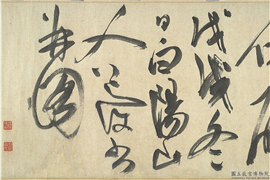 戊戌冬
日白陽山
人道復書
并圖
國立故宮博物院